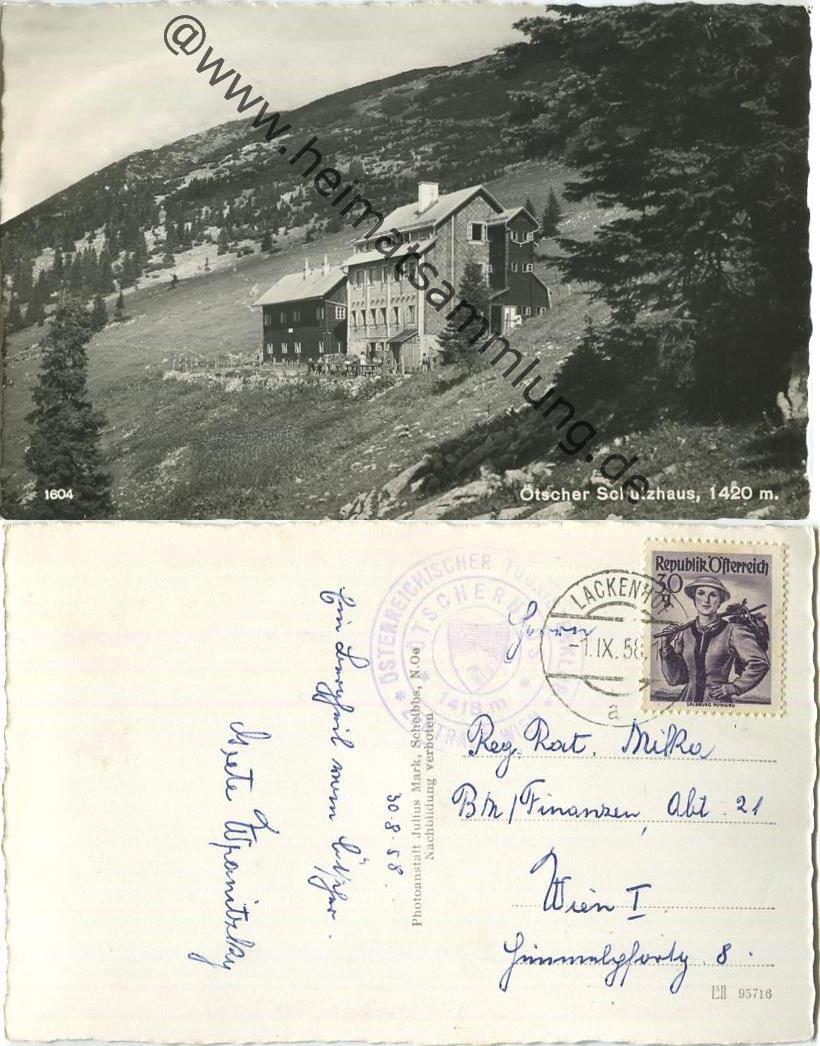 @www.heimatsammlung.de
1604
Ötscher Schutzhaus, 1420 m.
ÖSTERREICHISCHER
ÖTSCHERHAUS
1418 m
ZENTRALE WIEN
LACKENHOF
-1.IX.58
a
Republik Österreich
30 g
SALZBURG PONGAU
Photoanstalt Julius Mark, Scheibbs, N.Oe
Nachbildung verboten
30.8.58.
Ein vom Ötscher.
Grete
Herrn
Reg. Rat. Milka
BM/Finanzen, Abt. 21
Wien I
Himmelpfortg. 8.
95716